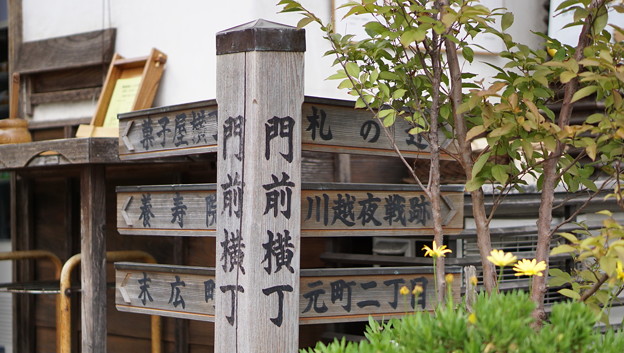 門前横丁
門前横丁
菓子屋横
札の辻
養寿院
川越夜戦跡
末広町
元町二丁目